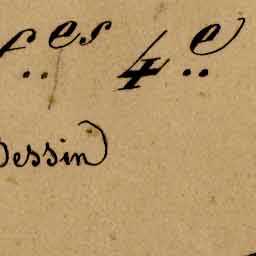 fes 4e
Dessin